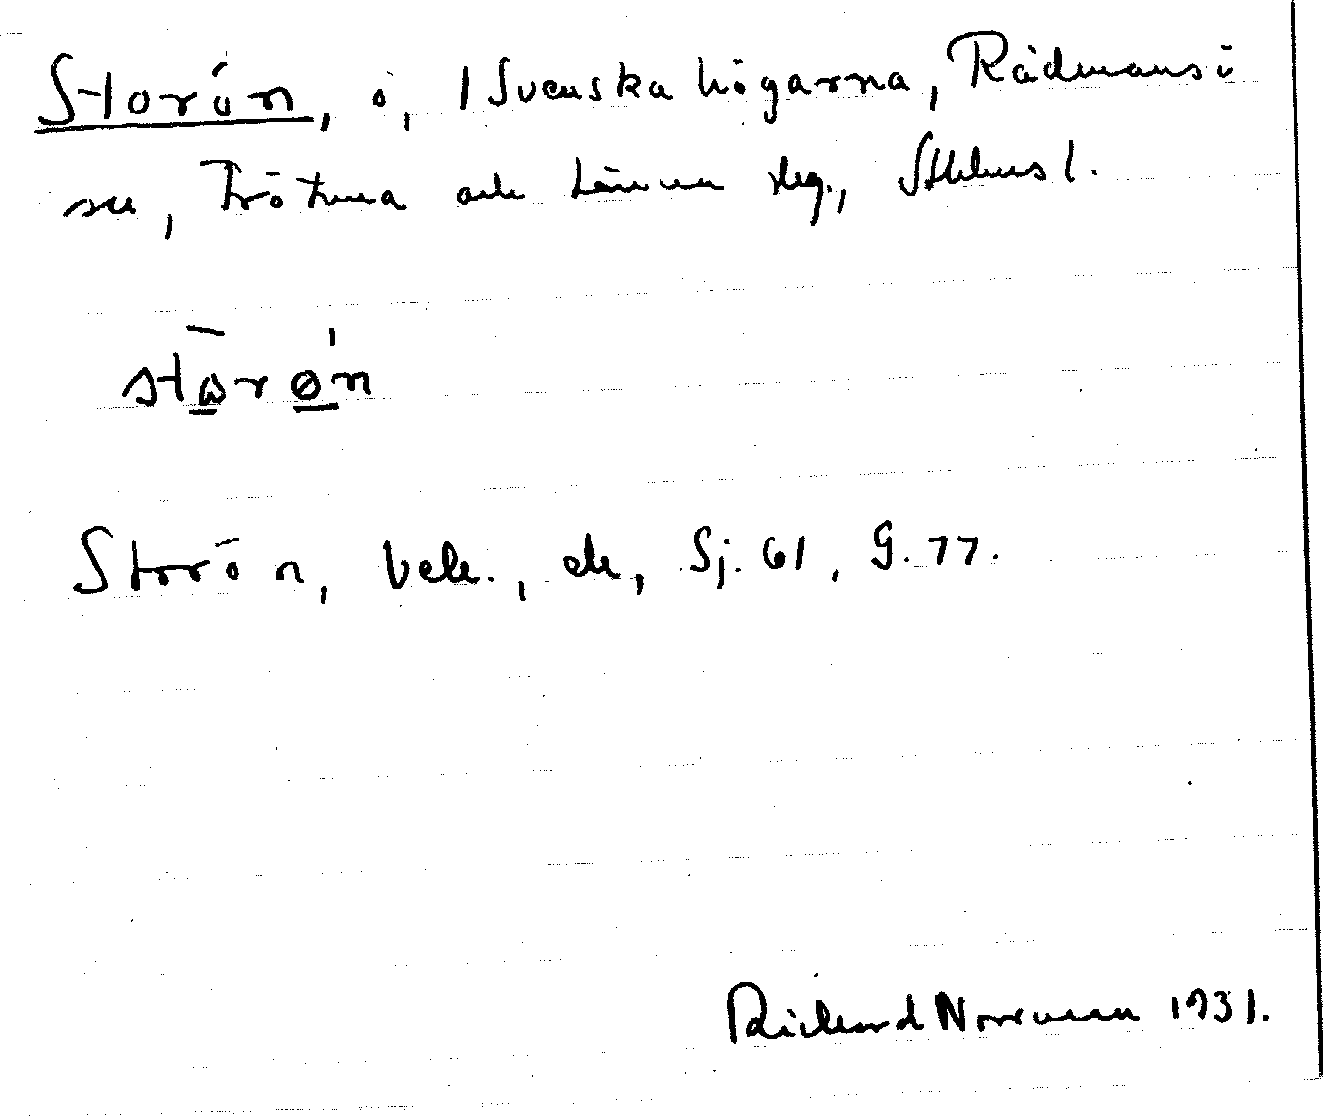 Storön, ö, i Svenska högarna, Rådmansö
sn, Frötuna och Länna skg., Sthlms l.
storøn
Storön, bek., ek, Sj. 61, G. 77.
Richard Norrman 1931.